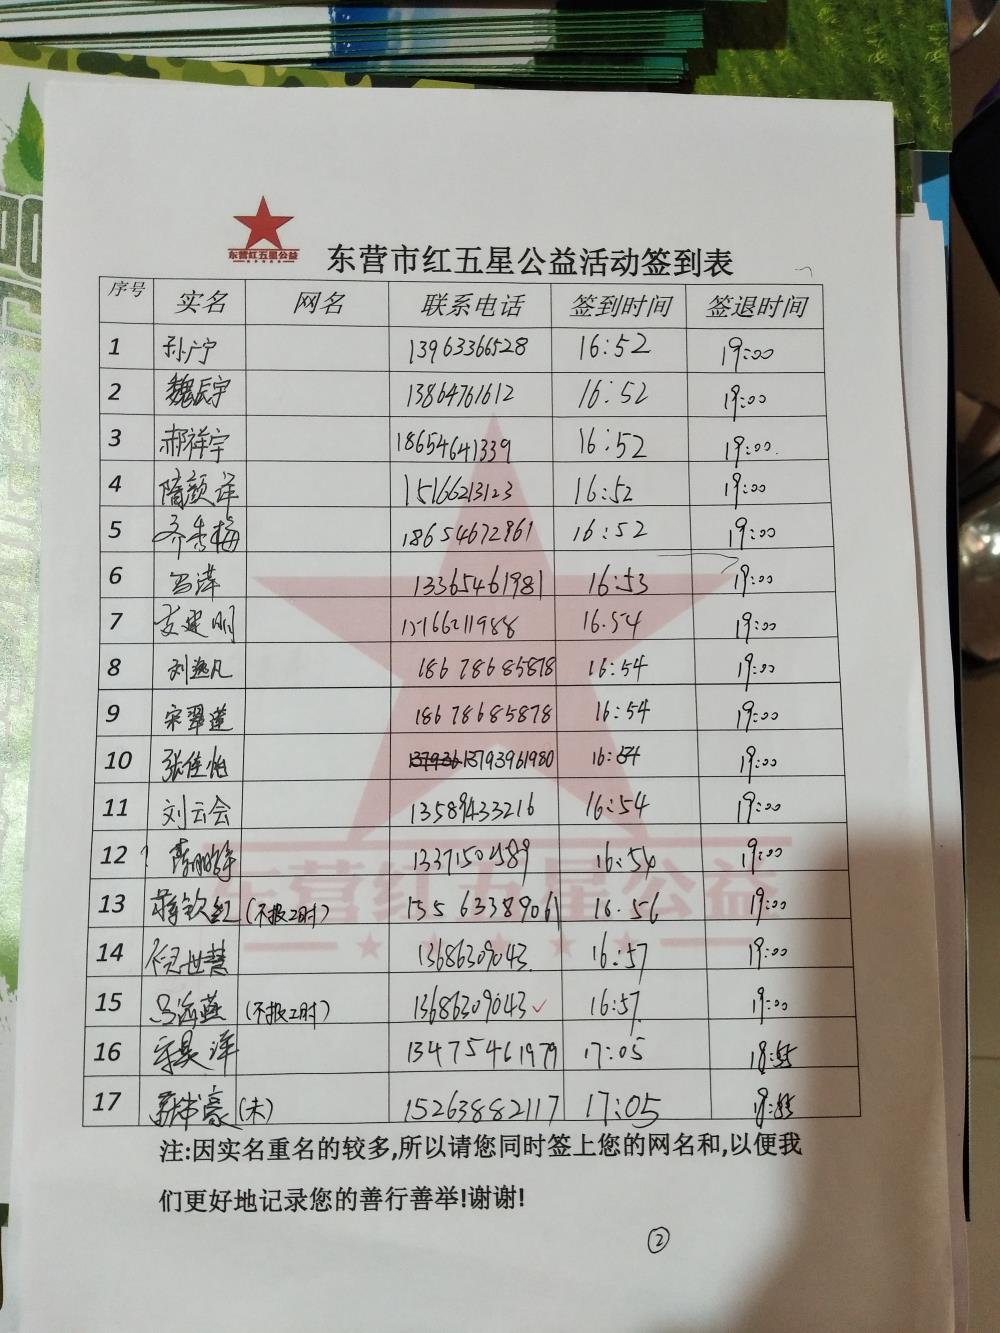 东营红五星公益
东营市红五星公益活动签到表
序号 实名 网名 联系电话 签到时间 签退时间
1 孙广宁 13963366528 16:52 19:00
2 魏辰宇 13864761612 16:52 19:00
3 郝祥宇 18654641339 16:52 19:00
4 隋颜详 15166213123 16:52 19:00
5 齐秀梅 18654672961 16:52 19:00
6 13365461981 16:53 19:00
7 支建明 16:54 19:00
8 刘逸凡 18678685878 16:54 19:00
9 宋翠莲 18678685878 16:54 19:00
10 张佳怡 13793961980 16:54 19:00
11 刘云会 13589433216 16:54 19:00
12 16:54 19:00
13 蒋钦红 (不报工时) 13563389061 16.56 19:00
14 世慧 13686309043 16:57 19:00
15 海燕 (不报工时) 13686309043 16:57 19:00
16 宋昊泽 13475461979 17:05 18:55
17 豪 (未) 15263882117 17:05 18:55
东营红五星公益
注:因实名重名的较多,所以请您同时签上您的网名和,以便我
们更好地记录您的善行善举!谢谢!
②